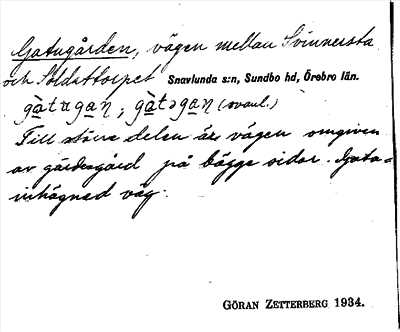 Gatugården, vägen mellan Svinnersta
och Soldattorpet Snavlunda s:n, Sundbo hd, Örebro län.
gàtuga̲n; gàtəga̲n (ovanl.)
Till större delen är vägen omgiven
av gärdesgård på bägge sidor. Gata =
inhägnad väg.
GÖRAN ZETTERBERG 1934.